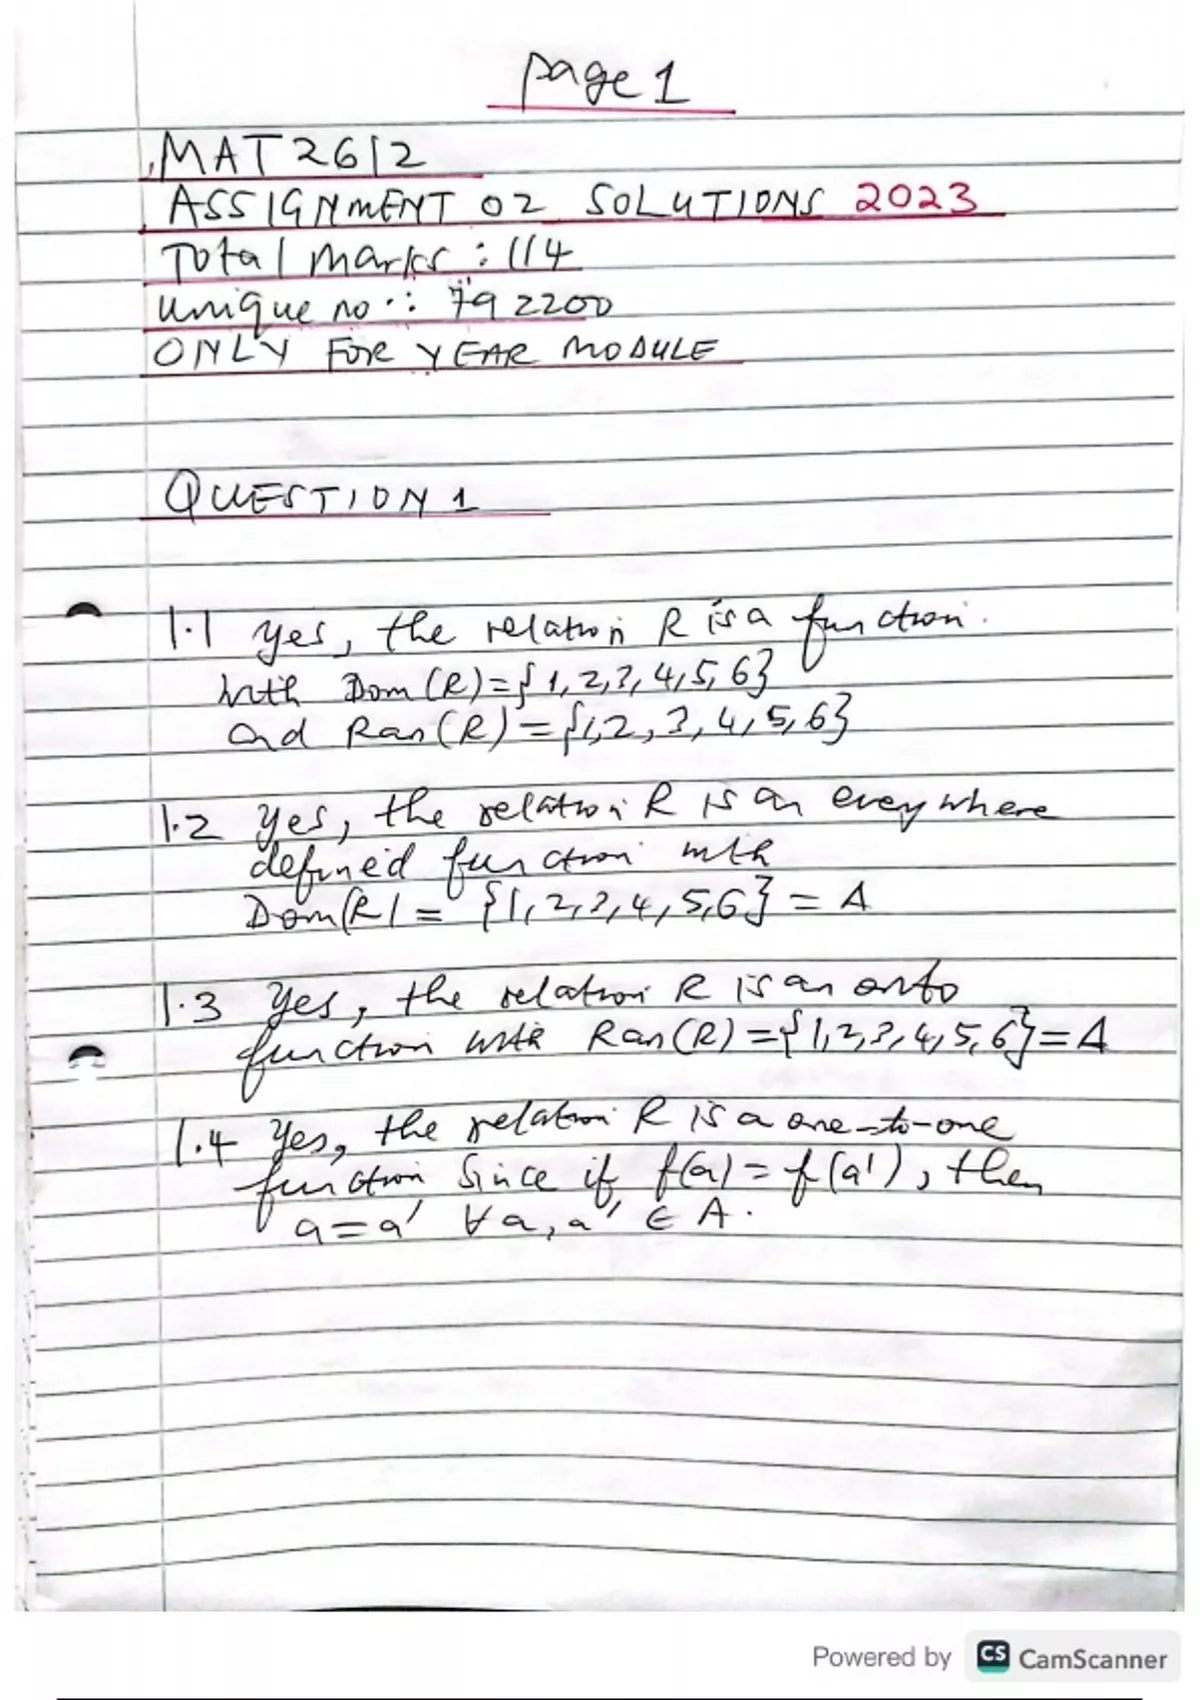 page 1
MAT2612
ASSIGNMENT 02 SOLUTIONS 2023
Total marks : 114
Unique no.: 792200
ONLY FOR YEAR MODULE
QUESTION 1
1.1 Yes, the relation R is a function.
with Dom(R)={1,2,3,4,5,6}
and Ran(R)={1,2,3,4,5,6}
1.2 Yes, the relation R is an everywhere
defined function with
Dom(R)= {1,2,3,4,5,6} = A
1.3 Yes, the relation R is an onto
function with Ran(R)={1,2,3,4,5,6}=A
1.4 Yes, the relation R is a one-to-one
function since if f(a)=f(a'), then
a=a' ∀a,a' ∈ A.
Powered by CS CamScanner